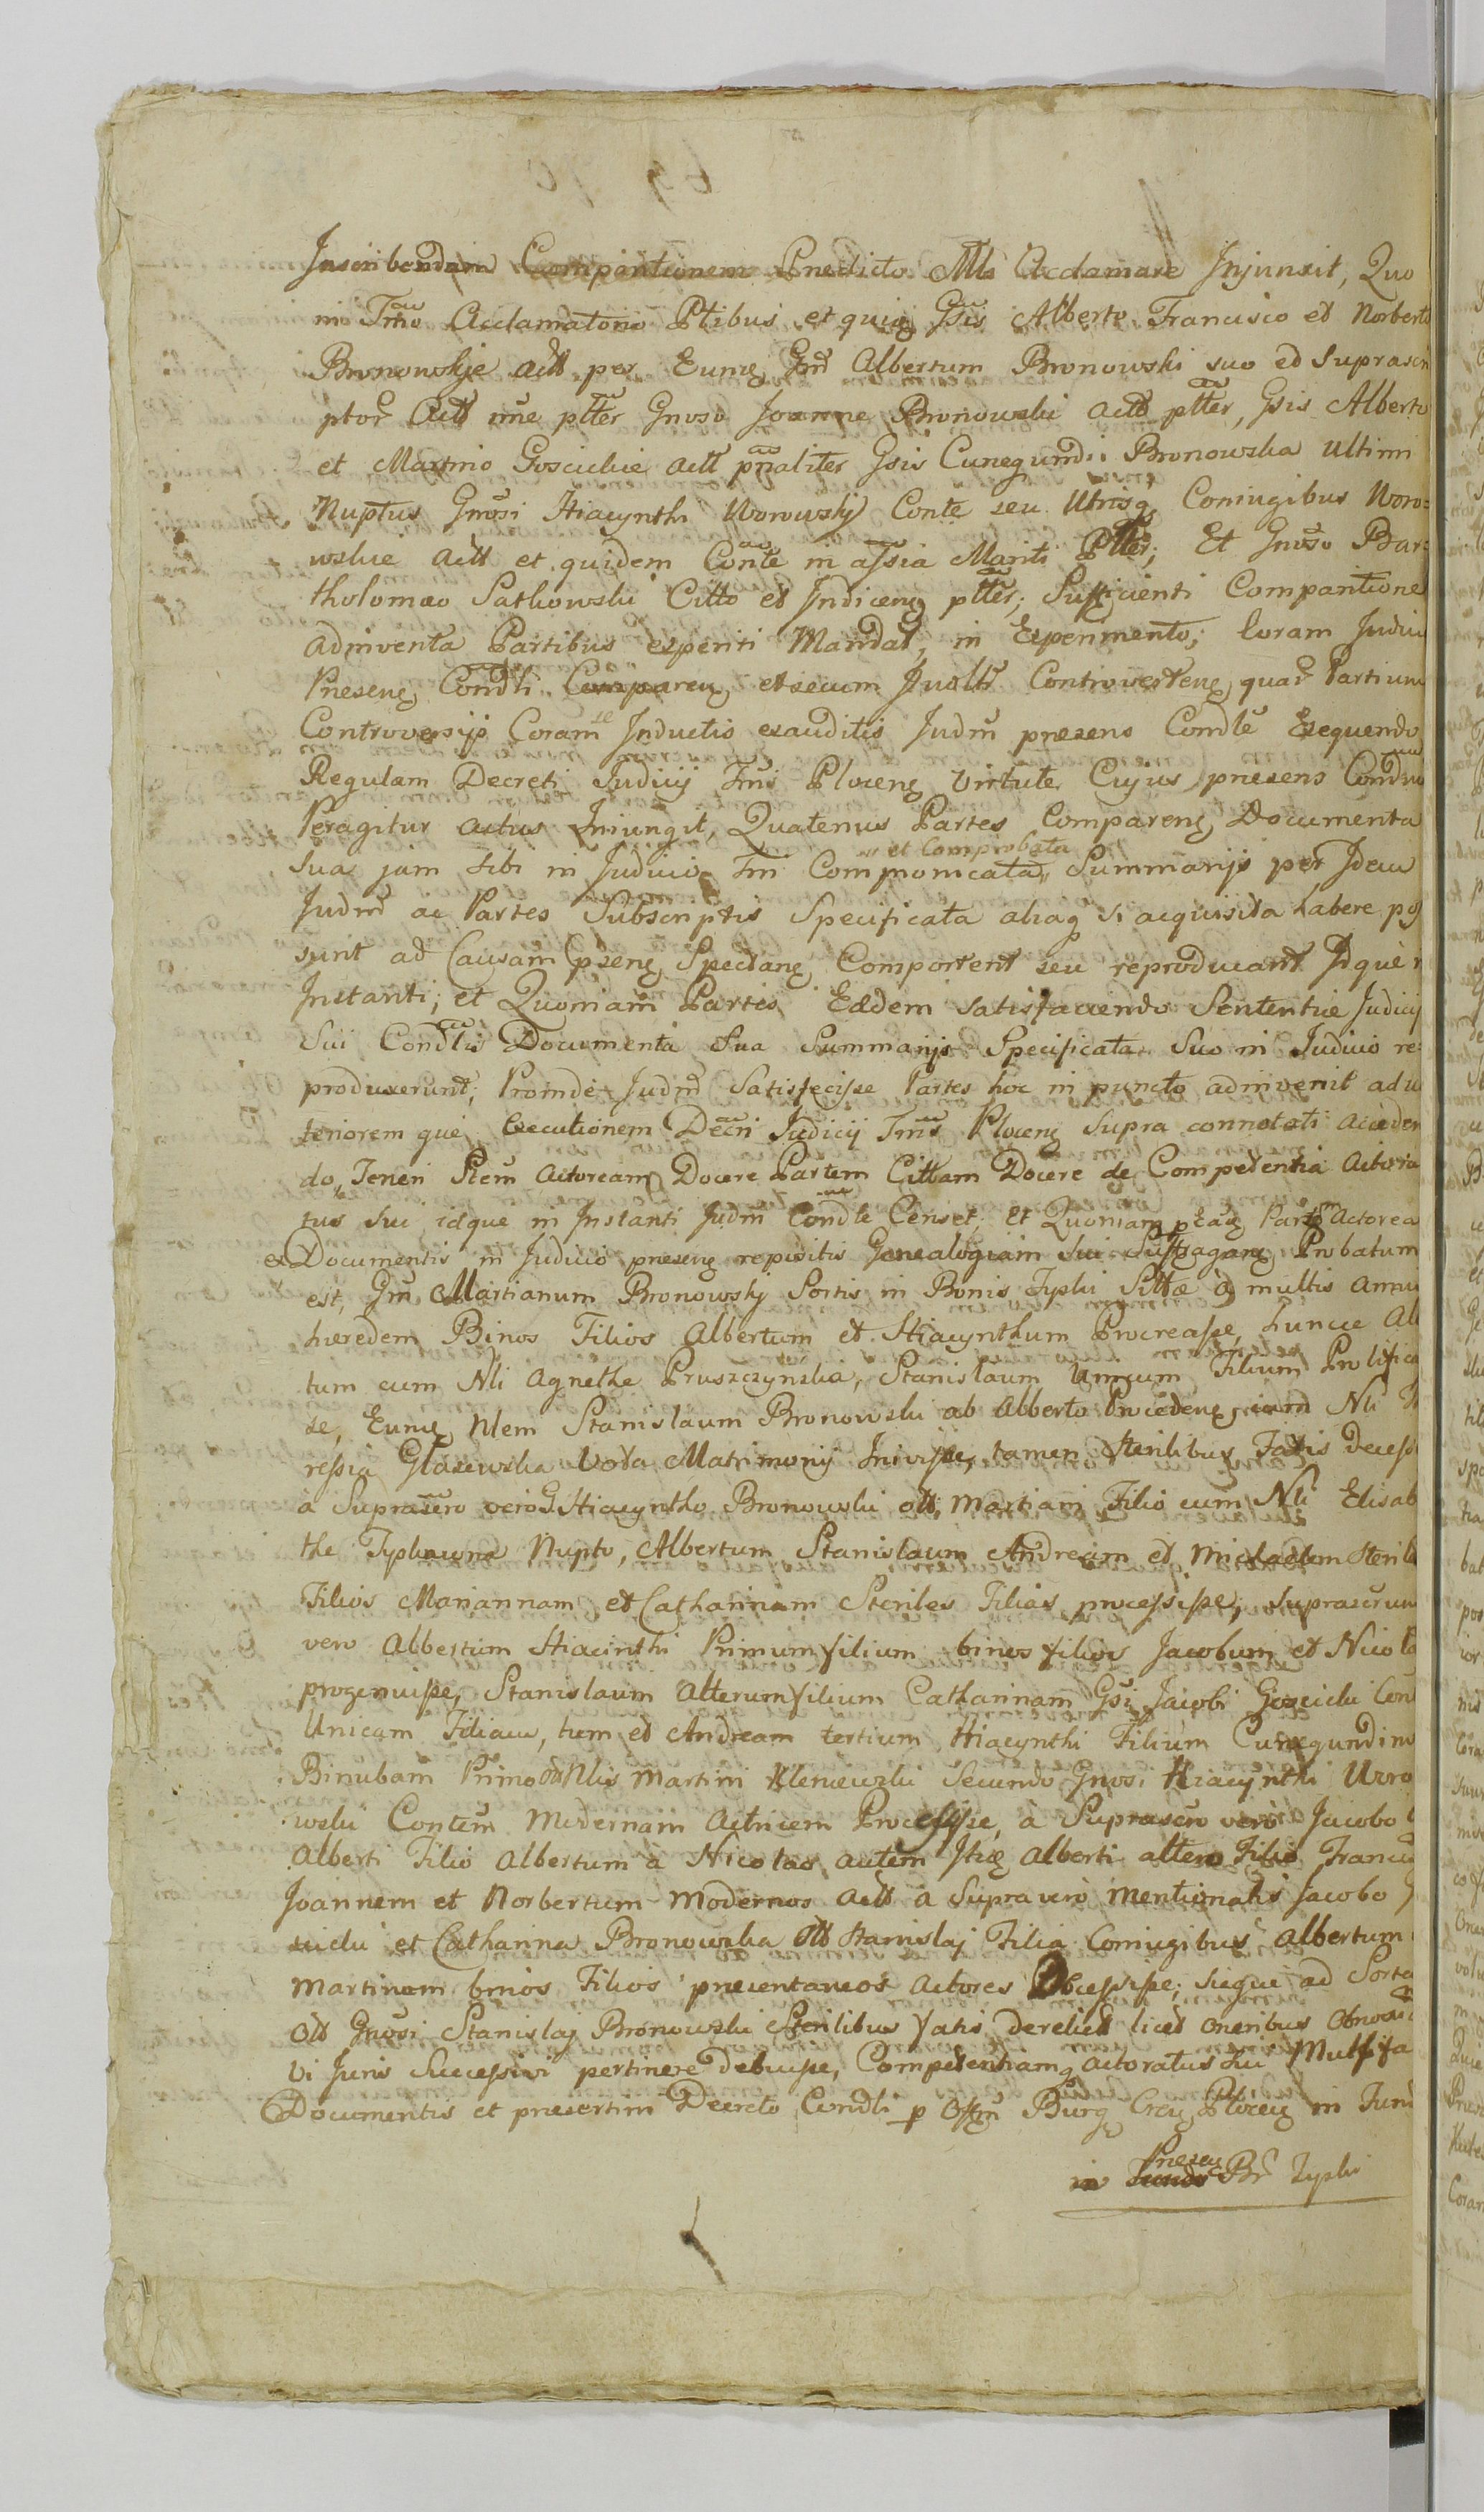 Inscribendam Comparitionem Praedicto Mtli Acclamare Injunxit, Quo
in Tmo Acclamatoris Ptibus et quiq Gsis Alberto Francisco et Norberto
Bronowskje actt per Eumq Gnd Albertum Bronowski suo ed Suprascri
ptor Actt nne ptter Gnoso Joanne Bronowski actt ptter, Gsis Alberto
et Martino Goscickie actt pnaliter Gsis Cunegundi Bronowska Ultimi
Nuptus Gnosi Hiacynthi Worowskj Conte seu Utrisq Coniugibus Woro=
wskie actt et quidem Conte in assia Mariti Ptter; Et Gnoso Bar=
tholomæo Satkowski Citto et Indiceng ptter; Sufficienti Comparitione
adinventa Partibus experiri Mandat, in Experimento, Coram Judici
Preseng Condli Compareng et secum Jnoltr Controverteng quar Partium
Controversijs Coram se Inductis exauditis Judm presens Condle Exequendo
Regulam Decreti Judicij Tms Ploceng Virtute Cujus presens Condu
Peragitur actus Iniungit, Quatenus Partes Compareng Documenta
Sua jam sibi in Judicio Tm Communicata et Comprobata Summarijs per Idem
Judm ac Partes Subscriptis Specificata aliaq si acquisita habere pos
sunt ad Causam pseng Spectang Comportent seu reproducant Idque
Instanti; et Quoniam Partes Eædem satisfaciendo Sententiæ Judicij
Sui Condlis Documenta Sua Summarijs Specificata Suo in Judicio re=
produxerunt; Proinde Judm Satisfecisse Partes hoc in puncto adinvenit ad u
teriorem que Executionem Decri Judicij Tms Ploceng Supra connotati acceden
do, Teneri Ptem actoream Docere Partem Cittam Docere de Competentia actora
tus sui idque in Instanti Judm Condle Censet; et Quoniam Partem Actorea
ex Documentis in Judicio preseng repositis Genealogiam sui Suffragang Probatum
est, Gm Martianum Bronowskj Sortis in Bonis Typki Sittæ a multis annis
hæredem Binos Filios Albertum et Hiacynthum Procreasse, hunce Al
tum cum Nli Agnethe Pruszczynska, Stanislaum Unicum Filium Prolifica
se, Eumq Nlem Stanislaum Bronowski ab Alberto Procedeng cum Nli
ressia Glazewska Vota Matrimonij Inivisse, tamen Sterilibus Fatis Decess
a Suprascro vero G Hiacyntho Bronowski ott Martiani Filio cum Nli Elisab
the Typkowna Nupto, Albertum Stanislaum Andream et Michaelem Steril
Filios Mariannam et Catharinam Steriles Filias processisse, suprascrum
vero Albertum Hiacinthi Primum filium binos filios Jacobum et Nicola
progenuisse, Stanislaum Alterum filium Catharinam Gsi Jacobi Goscicki Con
Unicam Filiam, tum et Andream tertium Hiacynthi Filium Cunegundim
Binubam Primo Nlis Martini Kleniewski Secundo Gnosi Hiacynthi Woro
wski Contem Modernam Actricem Processisse, a Suprascro vero Jacobo
Alberti Filio Albertum a Nicolao autem Itiq Alberti altero Filio Franci
Joannem et Norbertum Modernos actt a Supra vero mentionatis Jacobo
scicki et Catharina Bronowska Ott Stanislaj Filia Coniugibus Albertum
Martinum binos Filios presentaneos actores Processisse; sicque ad Sorte
Ott Gnosi Stanislaj Bronowski Sterilibus fatis derelict licet oneribus obnoxi
vi Juris Successivi pertinere debuisse, Competentiamq actoratus sui Mulfifa
Documentis et presertim Decreto Condli p Offm Burg Creg Ploceng in Fund
in Fundo Preseng Br Typki